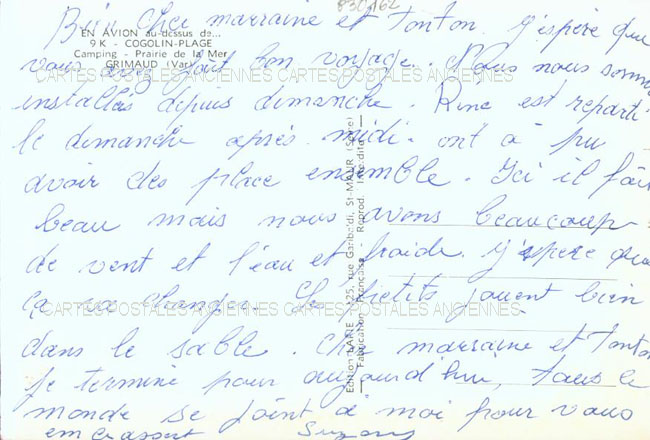 83C/162
Bien Cher marraine et Tonton. J'espère que
EN AVION au-dessus de...
9 K - COGOLIN-PLAGE
Camping - Prairie de la Mer
GRIMAUD (Var)
vous avez fait bon voyage. Nous nous somm
CARTES POSTALES ANCIENNES CARTES POSTALES ANCIENNES
installés depuis dimanche. Réné est reparti
le dimanche après midi. ont à pu
avoir des place ensemble. Ici il fait
beau mais nous avons beaucoup
de vent et l'eau et froide. J'espère que
ça va changer. Les petits jouent bien
CARTES POSTALES ANCIENNES CARTES POSTALES ANCIENNES
dans le sable. Cher marraine et Tonton
Je termine pour aujourd'hui, tous le
monde se joint à moi pour vous
embrassent
Edition LARE - 25, rue Garibaldi, St-MAUR (Seine)
Fabrication Française - Reprod. Interdite